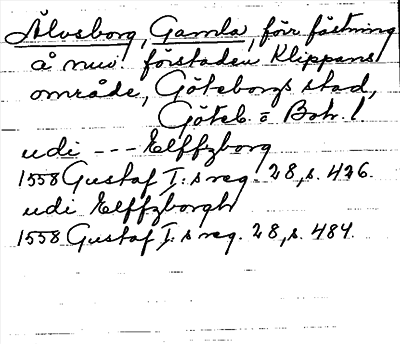 Älvsborg, Gamla, förr fästning
å nuv. förstaden Klippans
område, Göteborgs stad,
Göteb. o Boh. l
udi --- Elffzborg
1558 Gustaf I:s reg. 28, s. 426.
udi Elffzborgh
1558 Gustaf I:s reg. 28, s. 484.